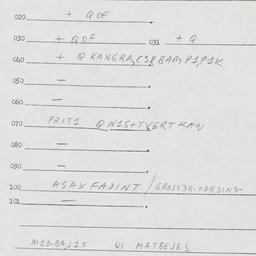 020 + QOF
030 + QOF 031 + Q
040 + Q KANGRA,C3R BAM P1,P1K
050 —
060 —
070 PRIT1 Q N1S+TVERT KAN
080 —
090 —
100 ASAX FADINT / GROSS3R-FARDINS-
101 —
M1D-BAJ15 Q1 MATBEJES